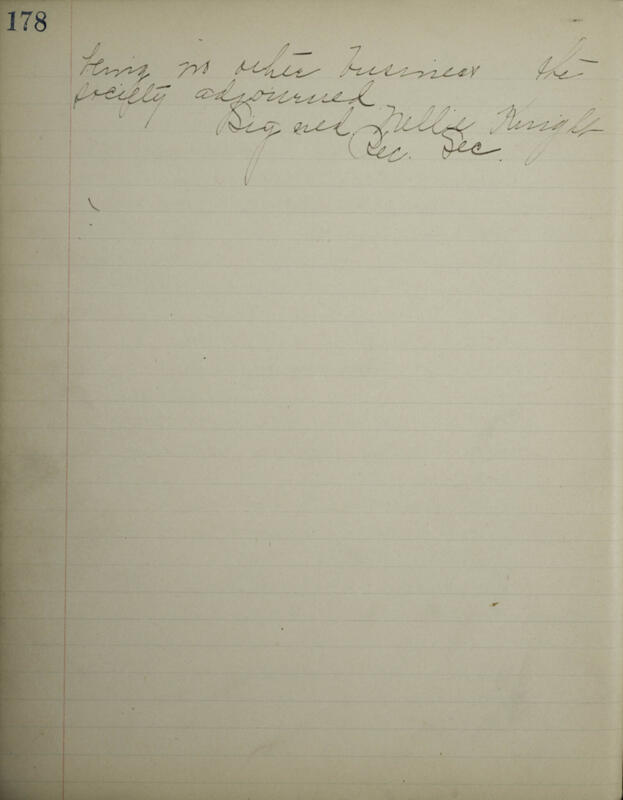 178
being no other business the
society adjourned.
Signed, Nellie Knight
Rec. Sec.